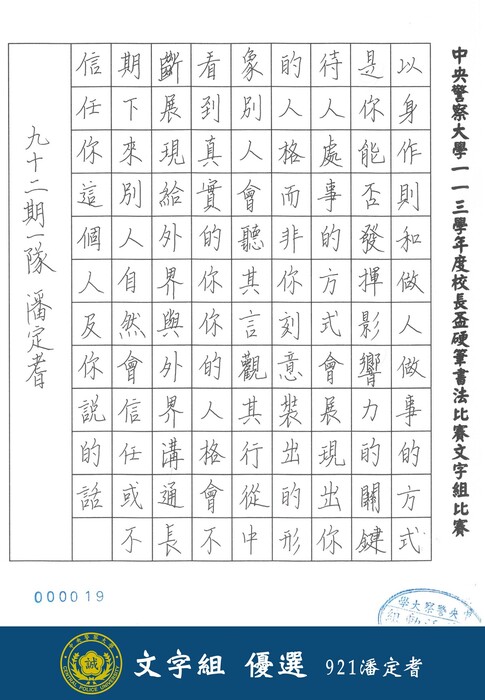 中央警察大學一一三學年度校長盃硬筆書法比賽文字組比賽
以身作則和做人做事的方式
是你能否發揮影響力的關鍵
待人處事的方式會展現出你
的人格而非你刻意裝出的形
象別人會聽其言觀其行從中
看到真實的你你的人格會不
斷展現給外界與外界溝通長
期下來別人自然會信任或不
信任你這個人及你說的話
九十二期一隊 潘定耆
000019
學大察警央
誠
CENTRAL POLICE UNIVERSITY
文字組 優選 921潘定耆